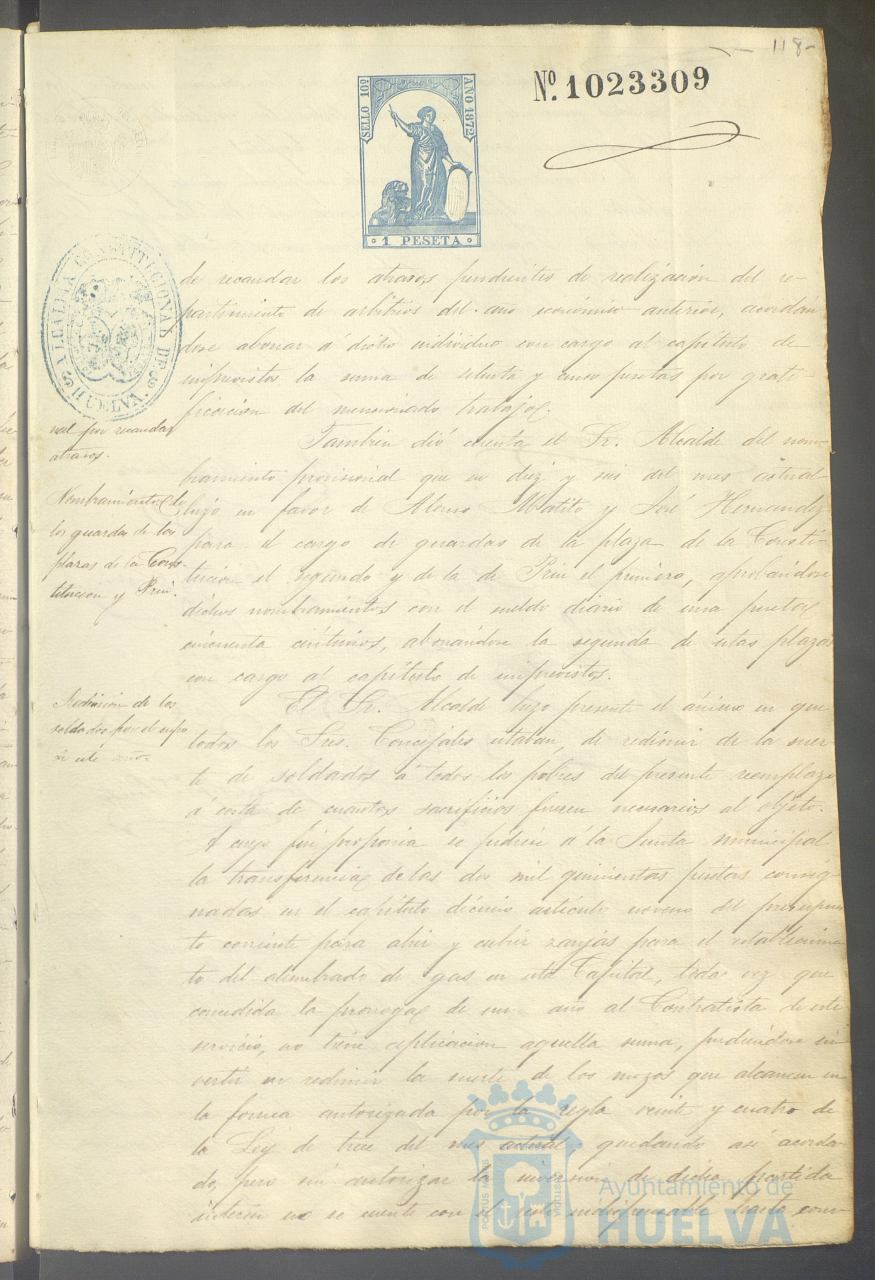 118
SELLO 10º
AÑO 1872
1 PESETA
Nº. 1023309
ALCALDIA CONSTITUCIONAL DE HUELVA.
de recaudar los atrasos pendientes de realización del re-
partimiento de arbitrios del año económico anterior, acordán
dose abonar á dicho individuo con cargo al capítulo de
imprevistos la suma de setenta y cinco pesetas por grati-
ficacion del mencionado trabajo.
nal por recaudar
atrasos.
Tambien dió cuenta el Sr. Alcalde del nom-
bramiento provisional que en diez y seis del mes actual
hizo en favor de Alonso Matito y José Hernandez
para el cargo de guardas de la plaza de la Consti-
tucion el segundo y de la de Prin el primero, aprobándose
dichos nombramientos con el sueldo diario de una peseta
cincuenta céntimos, abonándose la segunda de estas plazas
con cargo al capítulo de imprevistos.
Nombramiento de
los guarda de las
plazas de la Cons-
titucion y Prin.
El Sr. Alcalde hizo presente el ánimo en que
todos los Sres. Concejales estaban, de redimir de la suer-
te de soldados a todos los pobres del presente reemplazo
á costa de cuantos sacrificios fueren necesarios al objeto.
A cuyo fin proponia se pidiese á la Junta municipal
la transferencia de las dos mil quinientas pesetas consig-
nadas en el capítulo décimo artículo noveno del presupues
to corriente para abrir y cubrir zanjas para el establecimien
to del alumbrado de gas en esta Capital, toda vez que
concedida la proroga de un año al Contratista de este
servicio, no tiene aplicacion aquella suma, pudiéndose in-
vertir en redimir la suerte de los mozos que alcancen en
la forma autorizada por la regla veinte y cuatro de
la Ley de trece del mes actual, quedando así acorda-
do, pero sin autorizar la inversion de dicha partida
interin no se cuente con el resto indispensable hasta com-
Redencion de los
soldados por el cupo
de este año.
Ayuntamiento de
HUELVA